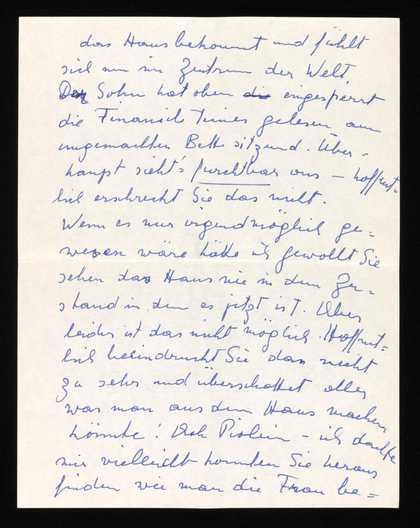 das Haus bekommt und fühlt
sich nun im Zentrum der Welt.
Der Sohn hat oben die eingesperrt
die Financial Times gelesen am
ungemachten Bett sitzend. Über-
haupt sieht's furchtbar aus – hoffent-
lich erschreckt Sie das nicht.
Wenn es nur irgendmöglich ge-
wesen wäre hätte ich gewollt Sie
sehen das Haus nie in dem Zu-
stand in dem es jetzt ist. Aber
leider ist das nicht möglich. Hoffent-
lich beeindruckt Sie das nicht
zu sehr und überschattet alles
was man aus dem Haus machen
könnte! Ach – ich dachte
mir vielleicht könnten Sie heraus
finden wie man die Frau be-